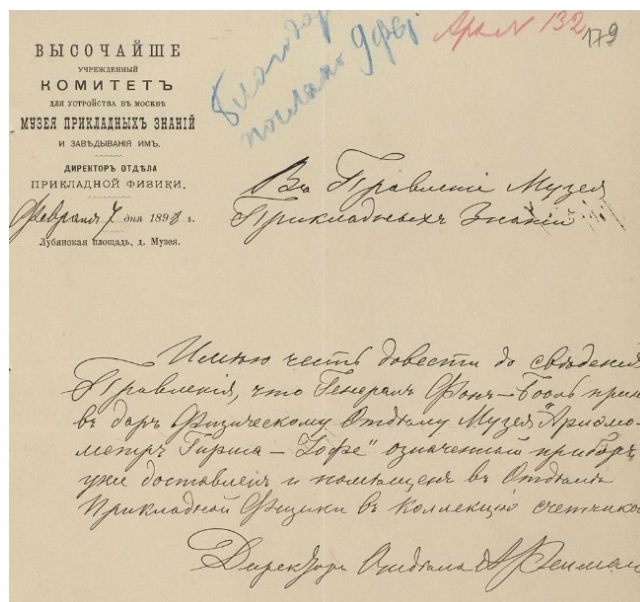 ВЫСОЧАЙШЕ
УЧРЕЖДЕННЫЙ
КОМИТЕТЪ
ДЛЯ УСТРОЙСТВА ВЪ МОСКВѢ
МУЗЕЯ ПРИКЛАДНЫХЪ ЗНАНІЙ
И ЗАВѢДЫВАНІЯ ИМЪ.
ДИРЕКТОРЪ ОТДѢЛА
ПРИКЛАДНОЙ ФИЗИКИ.
Февраля 7 дня 1898 г.
Лубянская площадь, д. Музея.
Благодар
послано 9 фев
132
179
Въ Правленіе Музея
Прикладныхъ Знаній
Имѣю честь довести до свѣденія
Правленія, что Генералъ Фонъ-Бооль
въ даръ Физическому Отдѣлу Музея „Ариѳмо-
метръ Гирша – означенный приборъ
уже доставленъ и помѣщенъ въ Отдѣлѣ
Прикладной Физики въ коллекцію счетчико
Директоръ Отдѣла